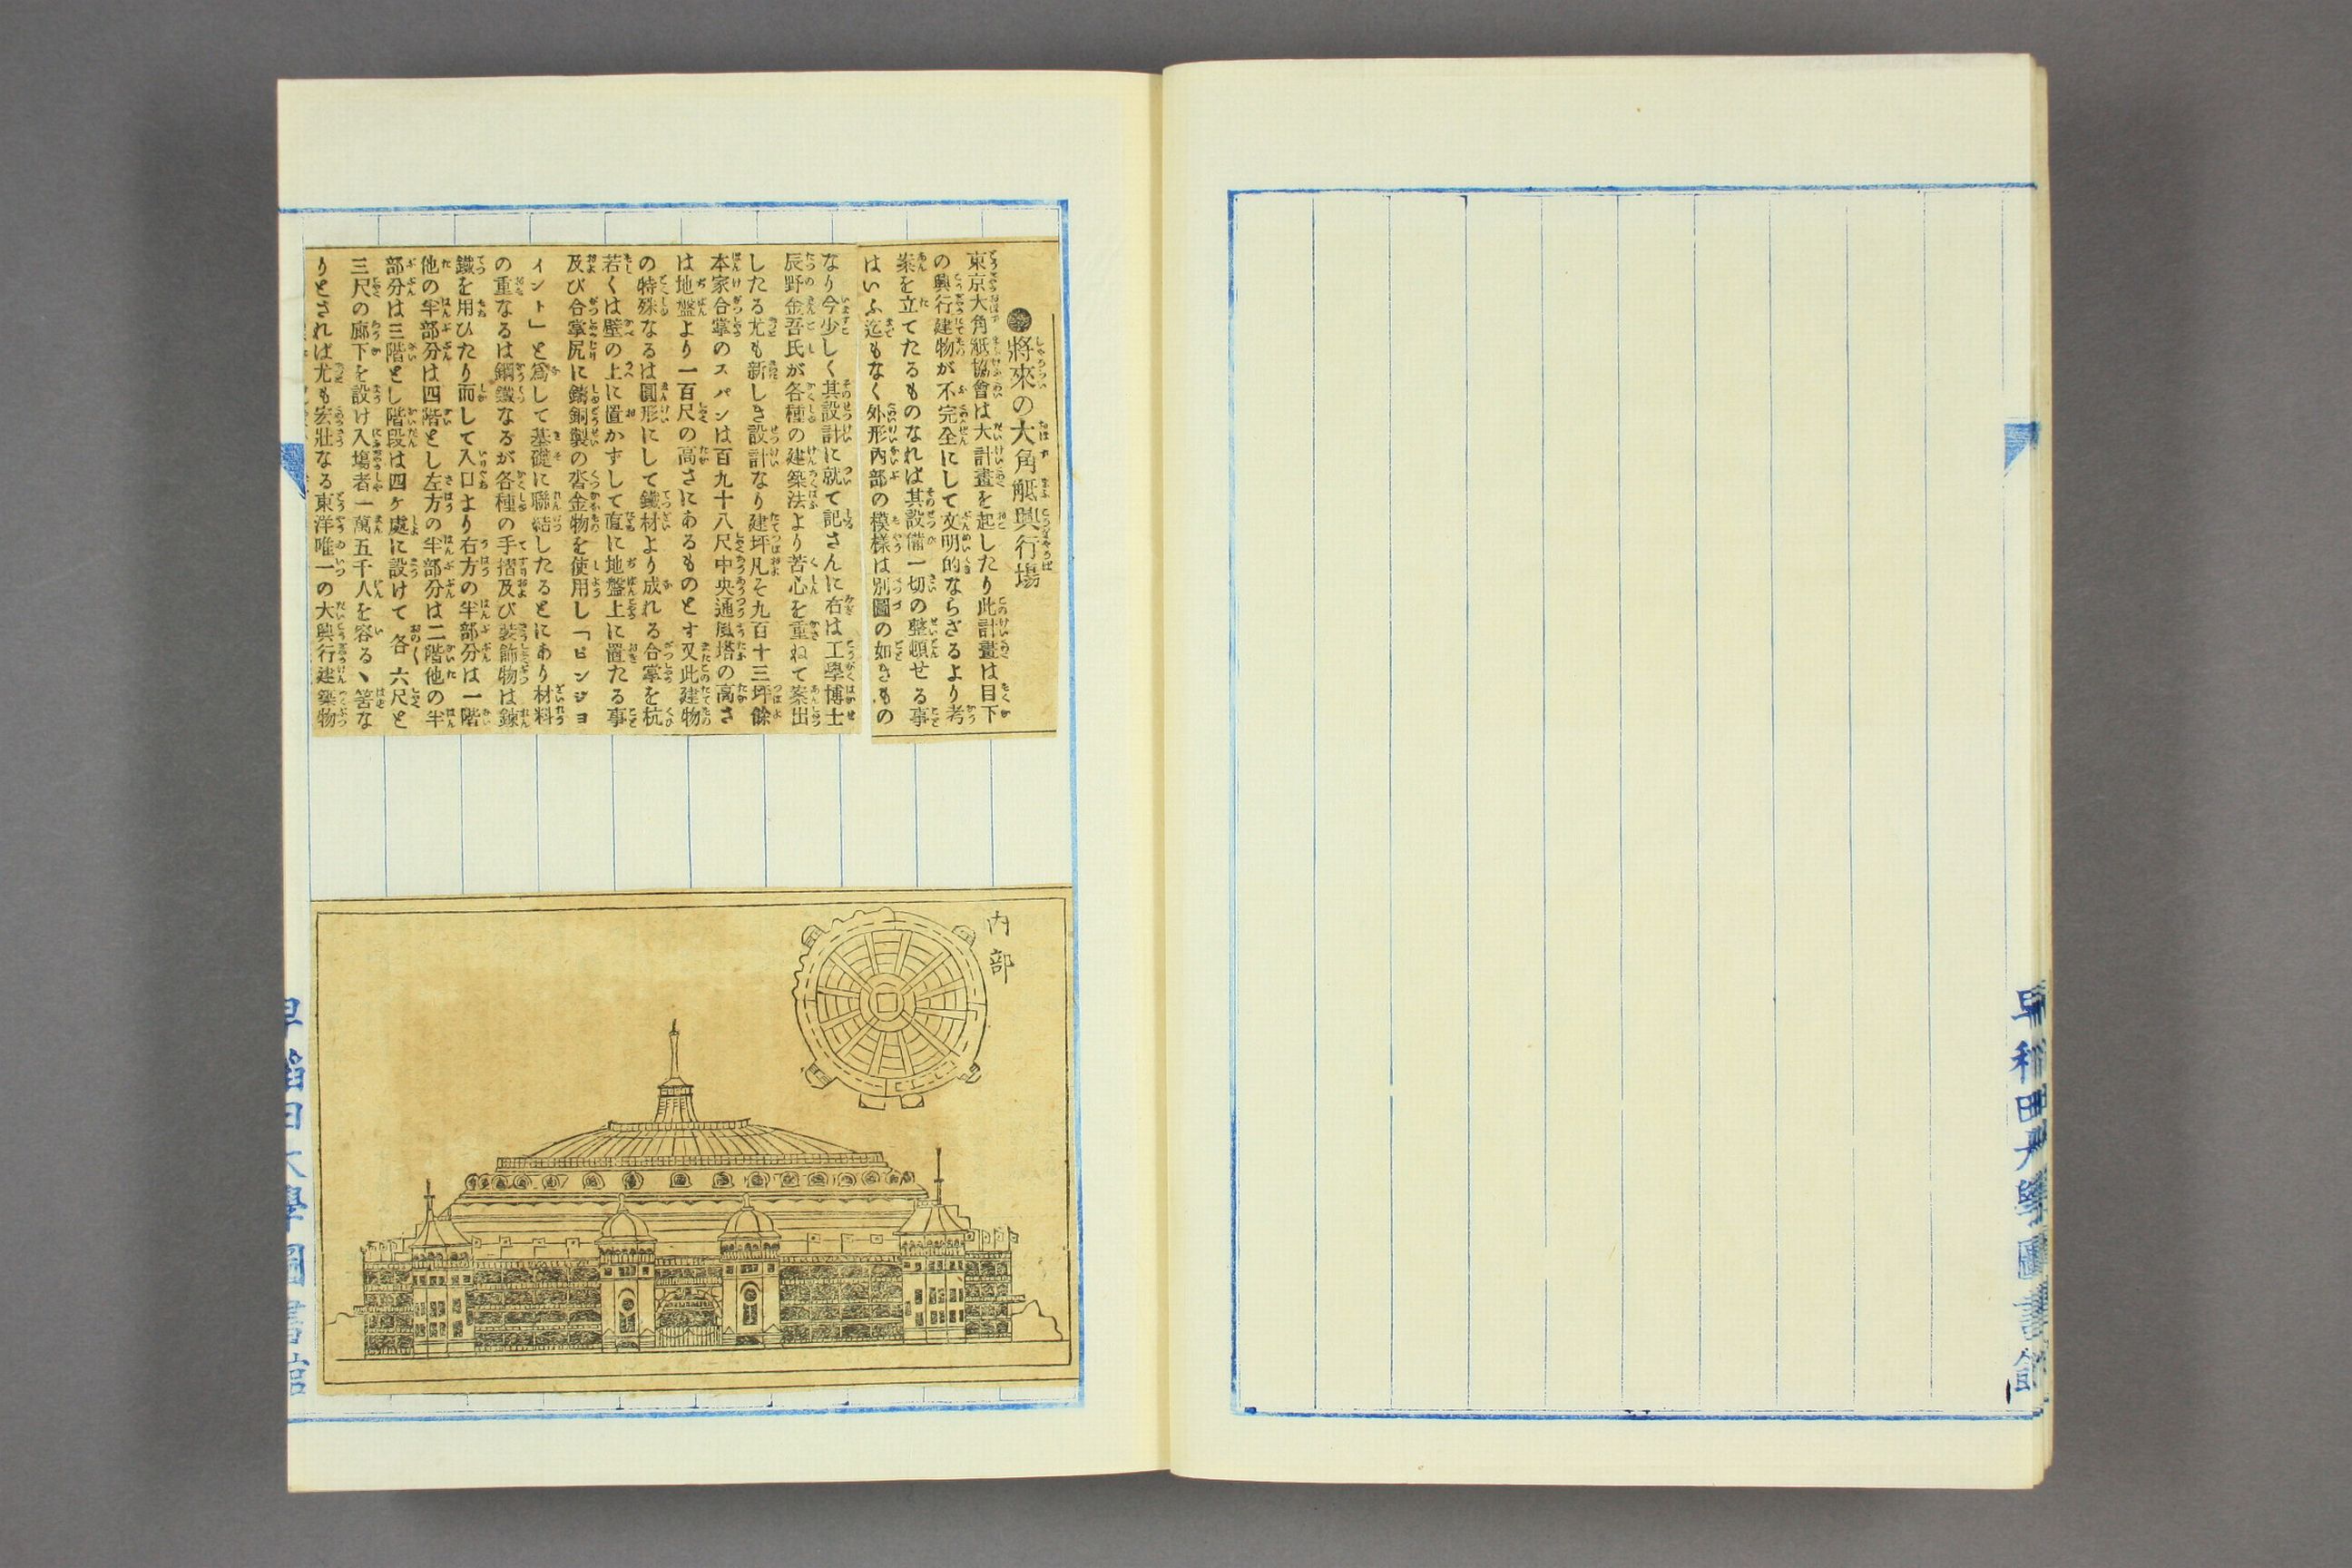 將來の大角觝興行場
東京大角觝協會は大計畫を起したり此計畫は目下
の興行建物が不完全にして文明的ならざるより考
案を立てたるものなれば其設備一切の整頓せる事
はいふ迄もなく外形內部の模樣は別圖の如きもの
なり今少しく其設計に就て記さんに右は工學博士
辰野金吾氏が各種の建築法より苦心を重ねて案出
したる尤も新しき設計なり建坪凡そ九百十三坪餘
本家合掌のスパンは百九十八尺中央通風塔の高さ
は地盤より一百尺の高さにあるものとす又此建物
の特殊なるは圓形にして鐵材より成れる合掌を杭
若くは壁の上に置かずして直に地盤上に置たる事
及び合掌尻に鑄銅製の沓金物を使用し「ピンジヨ
イント」と爲して基礎に聯結したるとにあり材料
の重なるは鋼鐵なるが各種の手摺及び裝飾物は鍊
鐵を用ひたり而して入口より右方の半部分は一階
他の半部分は四階とし左方の半部分は二階他の半
部分は三階とし階段は四ヶ處に設けて各六尺と
三尺の廊下を設け入塲者一萬五千人を容るヽ筈な
りとされば尤も宏壯なる東洋唯一の大興行建築物
內部
早稻田大學圖書館
早稻田大學圖書館